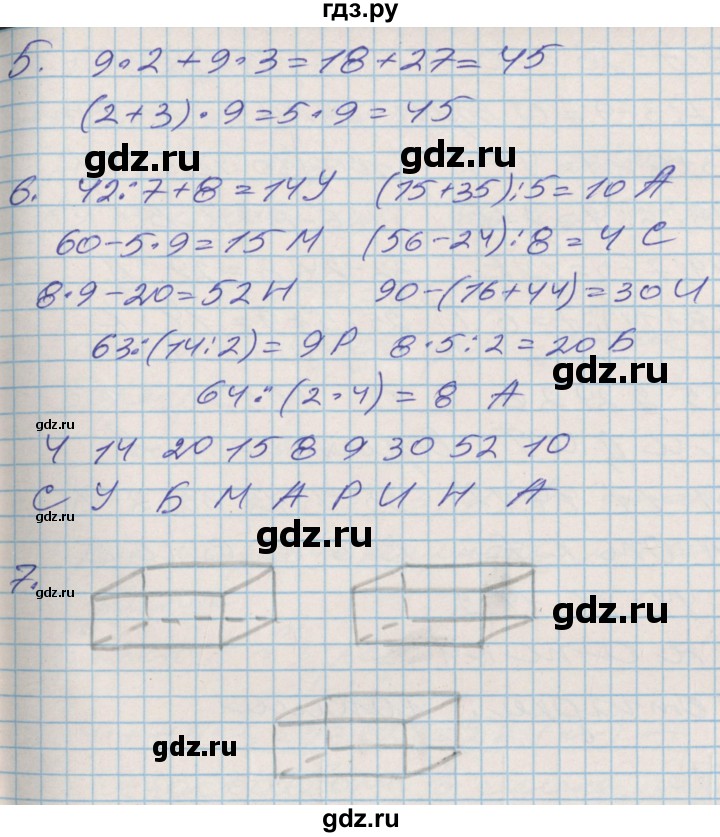 гдз.ру
5. 9·2+9·3=18+27=45
(2+3)·9=5·9=45
gdz.ru gdz.ru
6. 42:7+8=14У (15+35):5=10 А
60-5·9=15 М (56-24):8=4 С
8·9-20=52 Н 90-(16+44)=30 И
63:(14:2)=9 Р 8·5:2=20 Б
gdz.ru
64:(2·4)=8 А
gdz.ru
4 14 20 15 8 9 30 52 10
С У Б М А Р И Н А
gdz.ru
gdz.ru
7.
gdz.ru
gdz.ru
gdz.ru
gdz.ru